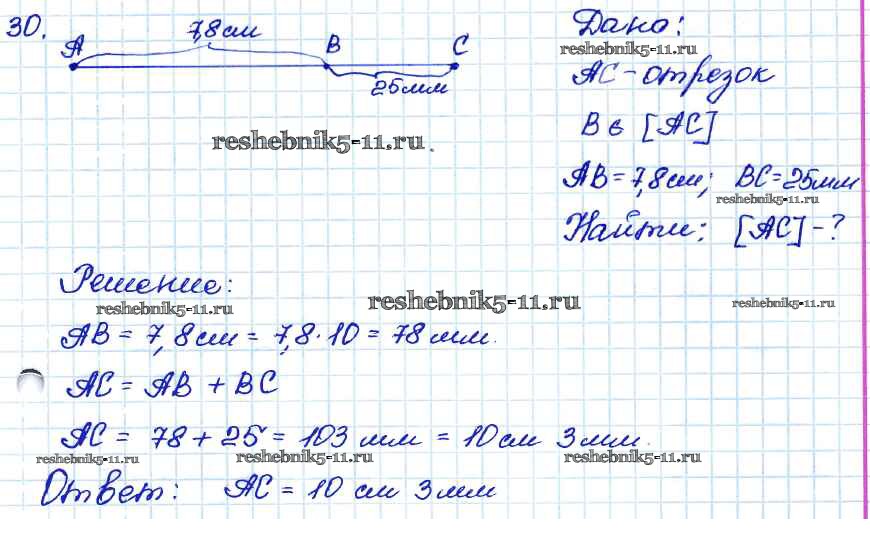 30.
7,8 см
A B C
25 мм
Дано:
reshebnik5-11.ru
AC - отрезок
reshebnik5-11.ru.
B ϵ [AC]
AB = 7,8 см; BC = 25 мм
reshebnik5-11.ru
Найти: [AC] - ?
Решение:
reshebnik5-11.ru reshebnik5-11.ru reshebnik5-11.ru
AB = 7,8 см = 7,8 · 10 = 78 мм.
AC = AB + BC
AC = 78 + 25 = 103 мм = 10 см 3 мм.
reshebnik5-11.ru reshebnik5-11.ru reshebnik5-11.ru
Ответ: AC = 10 см 3 мм